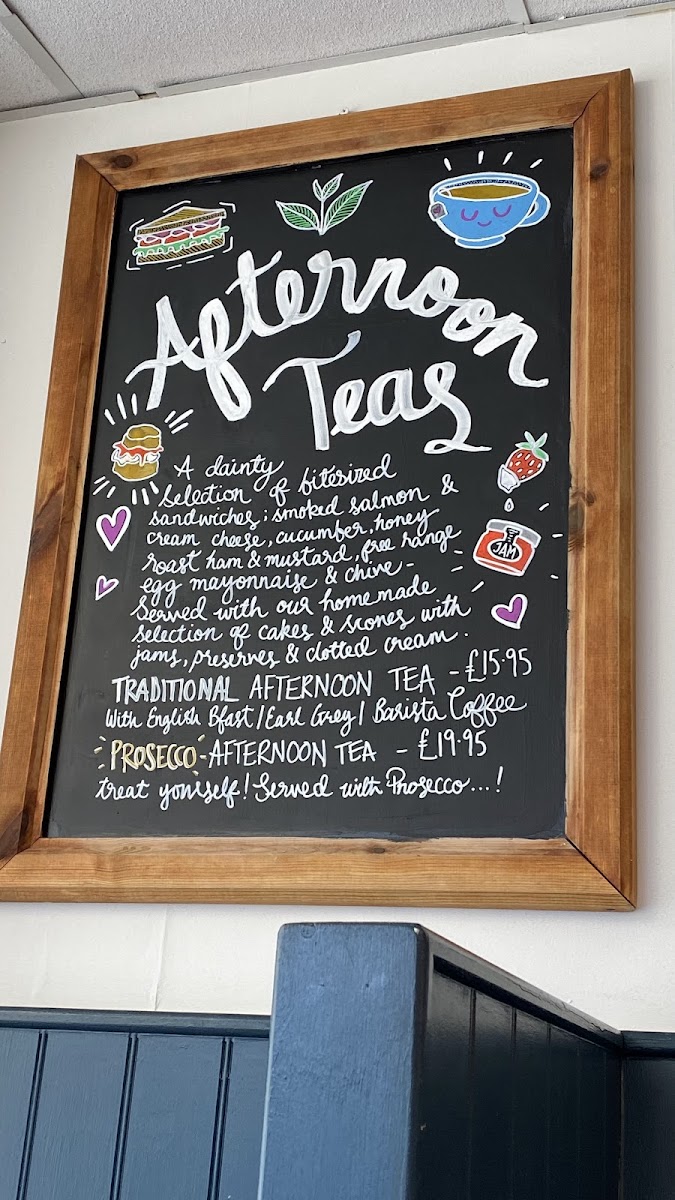 Afternoon
Teas
A dainty
Selection of bitesized
sandwiches; smoked salmon &
cream cheese, cucumber, honey
roast ham & mustard, free range
egg mayonnaise & chive -
Served with our homemade
selection of cakes & scones with
jams, preserves & clotted cream.
JAM
TRADITIONAL AFTERNOON TEA - £15.95
With English Bfast/Earl Grey/Barista Coffee
PROSECCO AFTERNOON TEA - £19.95
treat yourself! Served with Prosecco...!